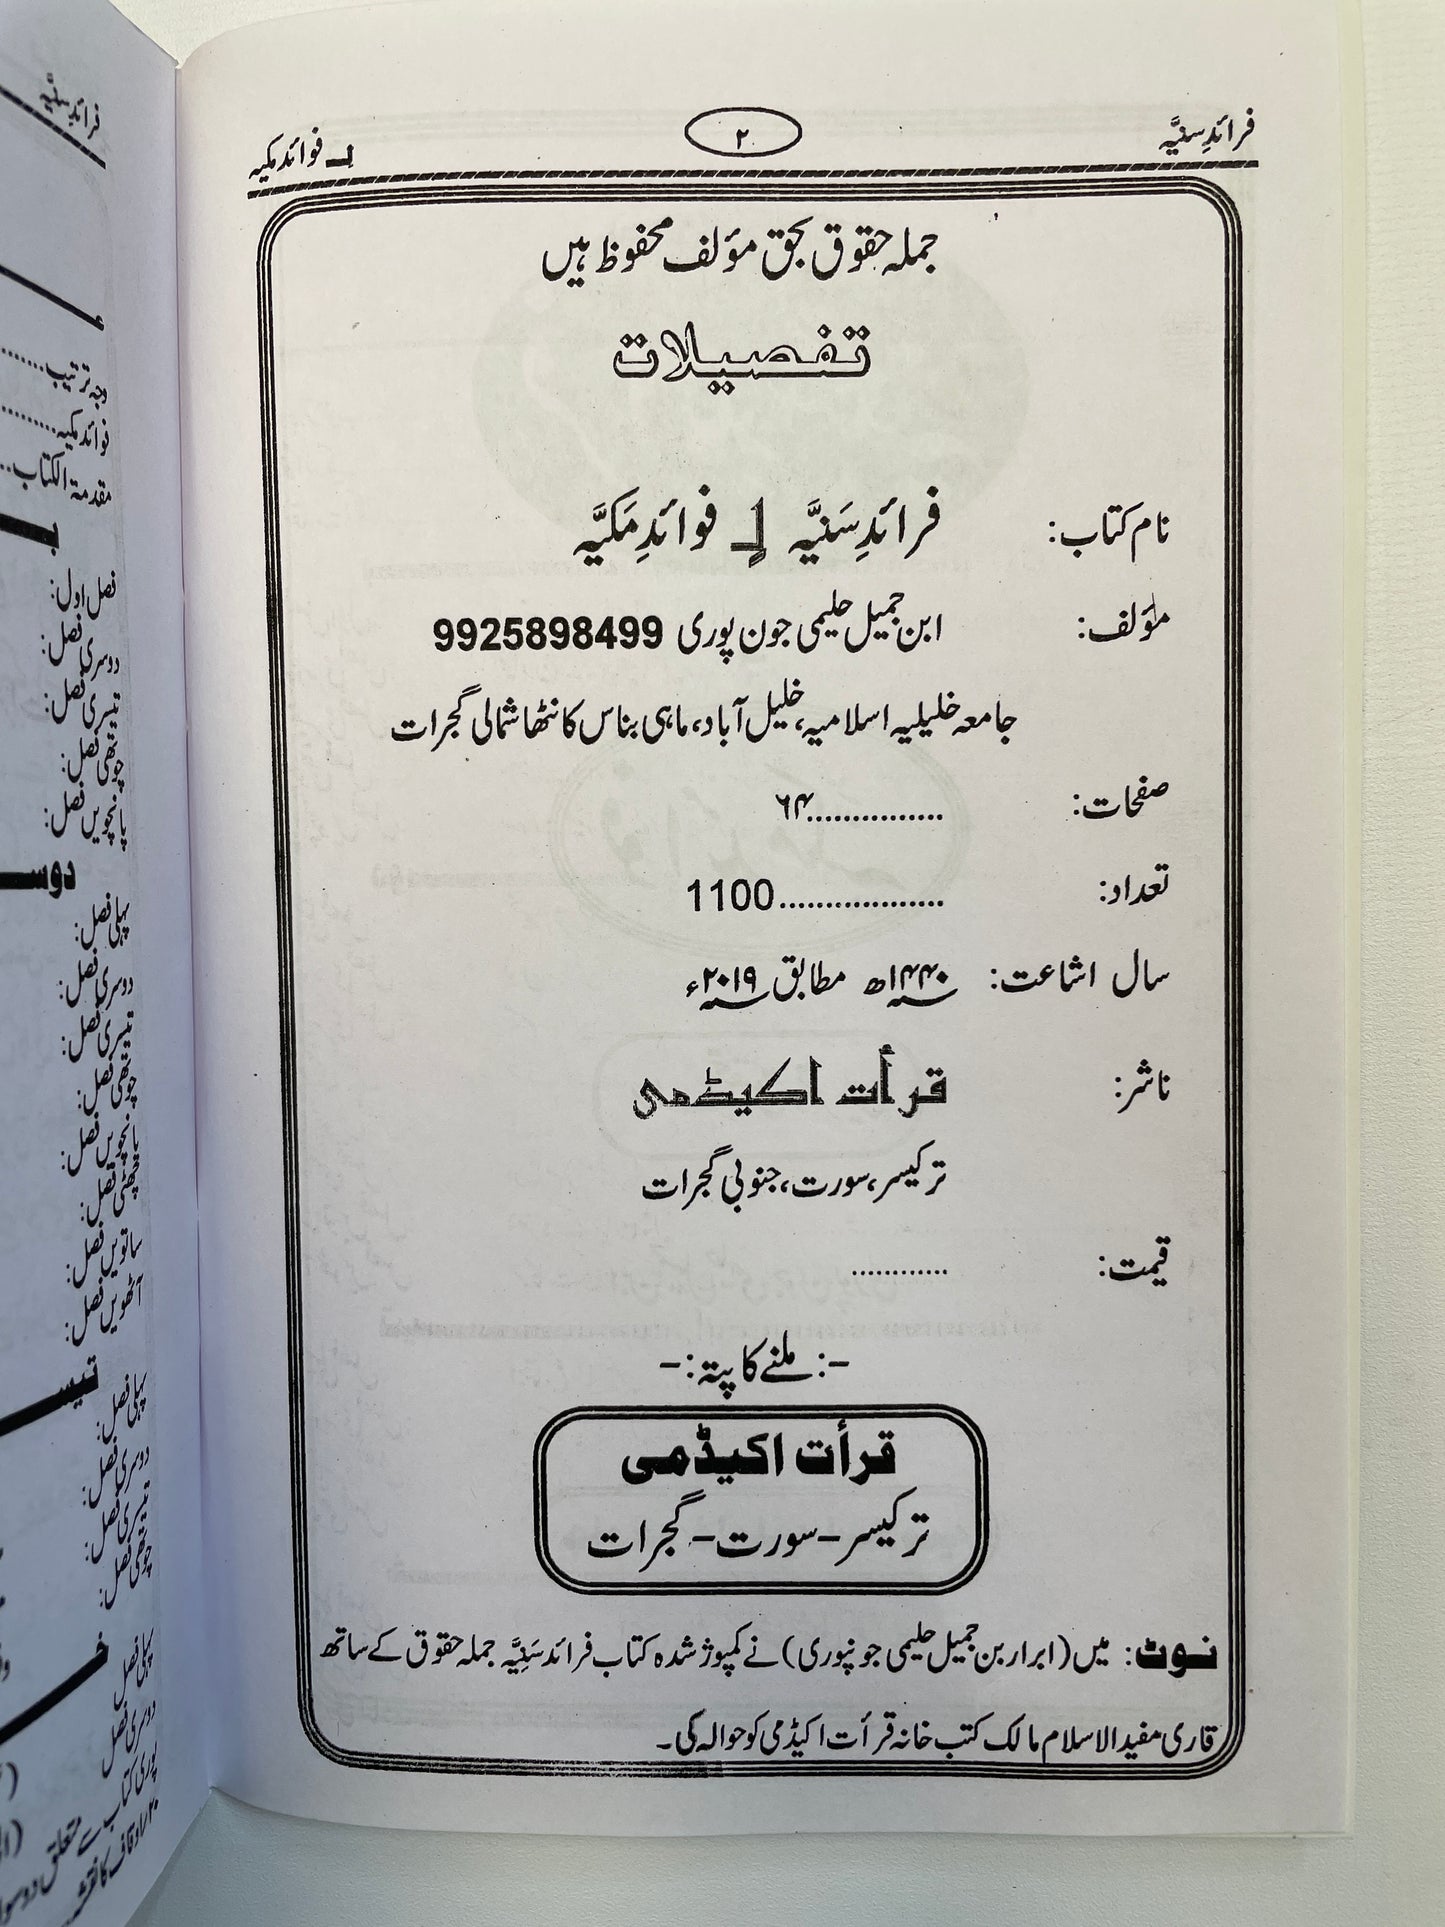 فرائدِ سنیَّہ
۲
لـ فوائد مکیہ
جملہ حقوق بحق مؤلف محفوظ ہیں
تفصیلات
نام کتاب: فرائدِ سَنیَّہ لـِ فوائدِ مَکیَّہ
مؤلف: ابن جمیل حلیمی جون پوری 9925898499
جامعہ خلیلیہ اسلامیہ، خلیل آباد، ماہی بناس کانٹھا شمالی گجرات
صفحات: ...............۶۴
تعداد: ..................1100
سال اشاعت: ۱۴۴۰ھ مطابق ۲۰۱۹ء
ناشر: قرأت اکیڈمی
ترکیسر، سورت، جنوبی گجرات
قیمت: ............
-: ملنے کا پتہ :-
قرأت اکیڈمی
ترکیسر – سورت – گجرات
نوٹ: میں (ابرار بن جمیل حلیمی جونپوری) نے کمپوز شدہ کتاب فرائد سَنِیَّہ جملہ حقوق کے ساتھ
قاری مفید الاسلام مالک کتب خانہ قرأت اکیڈمی کو حوالہ کی۔
فرائدِ سنیَّہ
وجہ ترتیب........
فوائد مکیہ........
مقدمۃ الکتاب..
فصل اول:
دوسری فصل:
تیسری فصل:
چوتھی فصل:
پانچویں فصل:
دوسـ
پہلی فصل:
دوسری فصل:
تیسری فصل:
چوتھی فصل:
پانچویں فصل:
چھٹی فصل:
ساتویں فصل:
آٹھویں فصل:
تیسـ
پہلی فصل:
دوسری فصل:
تیسری فصل:
چوتھی فصل:
پہلی فصل
دوسری فصل
پوری کتاب سے متعلق دوسو